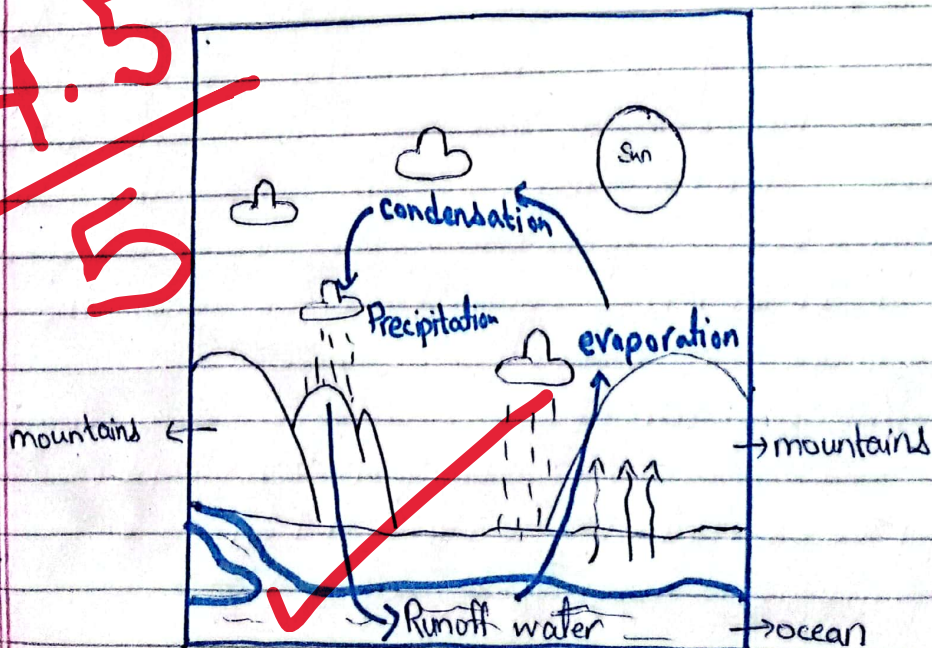 4.5
5
Sun
condensation
Precipitation
evaporation
mountains
mountains
Runoff water
ocean